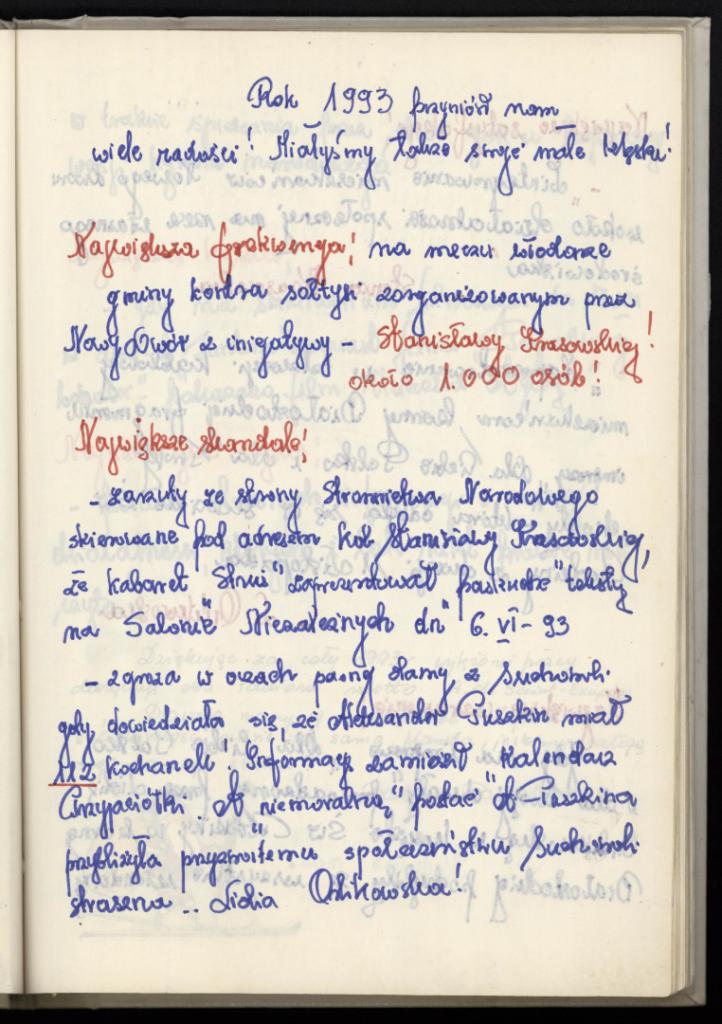 Rok 1993 przyniósł nam
wiele radości! Mieliśmy także swoje małe klęski!
Największa frekwencja! na meczu włodarze
gminy kontra sołtysi zorganizowanym przez
Nowy Dwór z inicjatywy – Stanisławy Krasowskiej!
około 1.000 osób!
Największe skandale!
– zarzuty ze strony Stronnictwa Narodowego
skierowane pod adresem kol. Stanisławy Krasowskiej,
że kabaret "Struś" zaprezentował "paskudne" teksty
na "Salonie Niezależnych" dn. 6. VI – 93
– zgroza w oczach pewnej damy z Suchowoli
gdy dowiedziała się, że Aleksander Puszkin miał
112 kochanek! Informację zamieścił Kalendarz
Przyjaciółki. A "niemoralną" postać A. Puszkina
przybliżyła przyzwoitemu społeczeństwu Suchowoli
straszna .. Lidia Orlikowska!